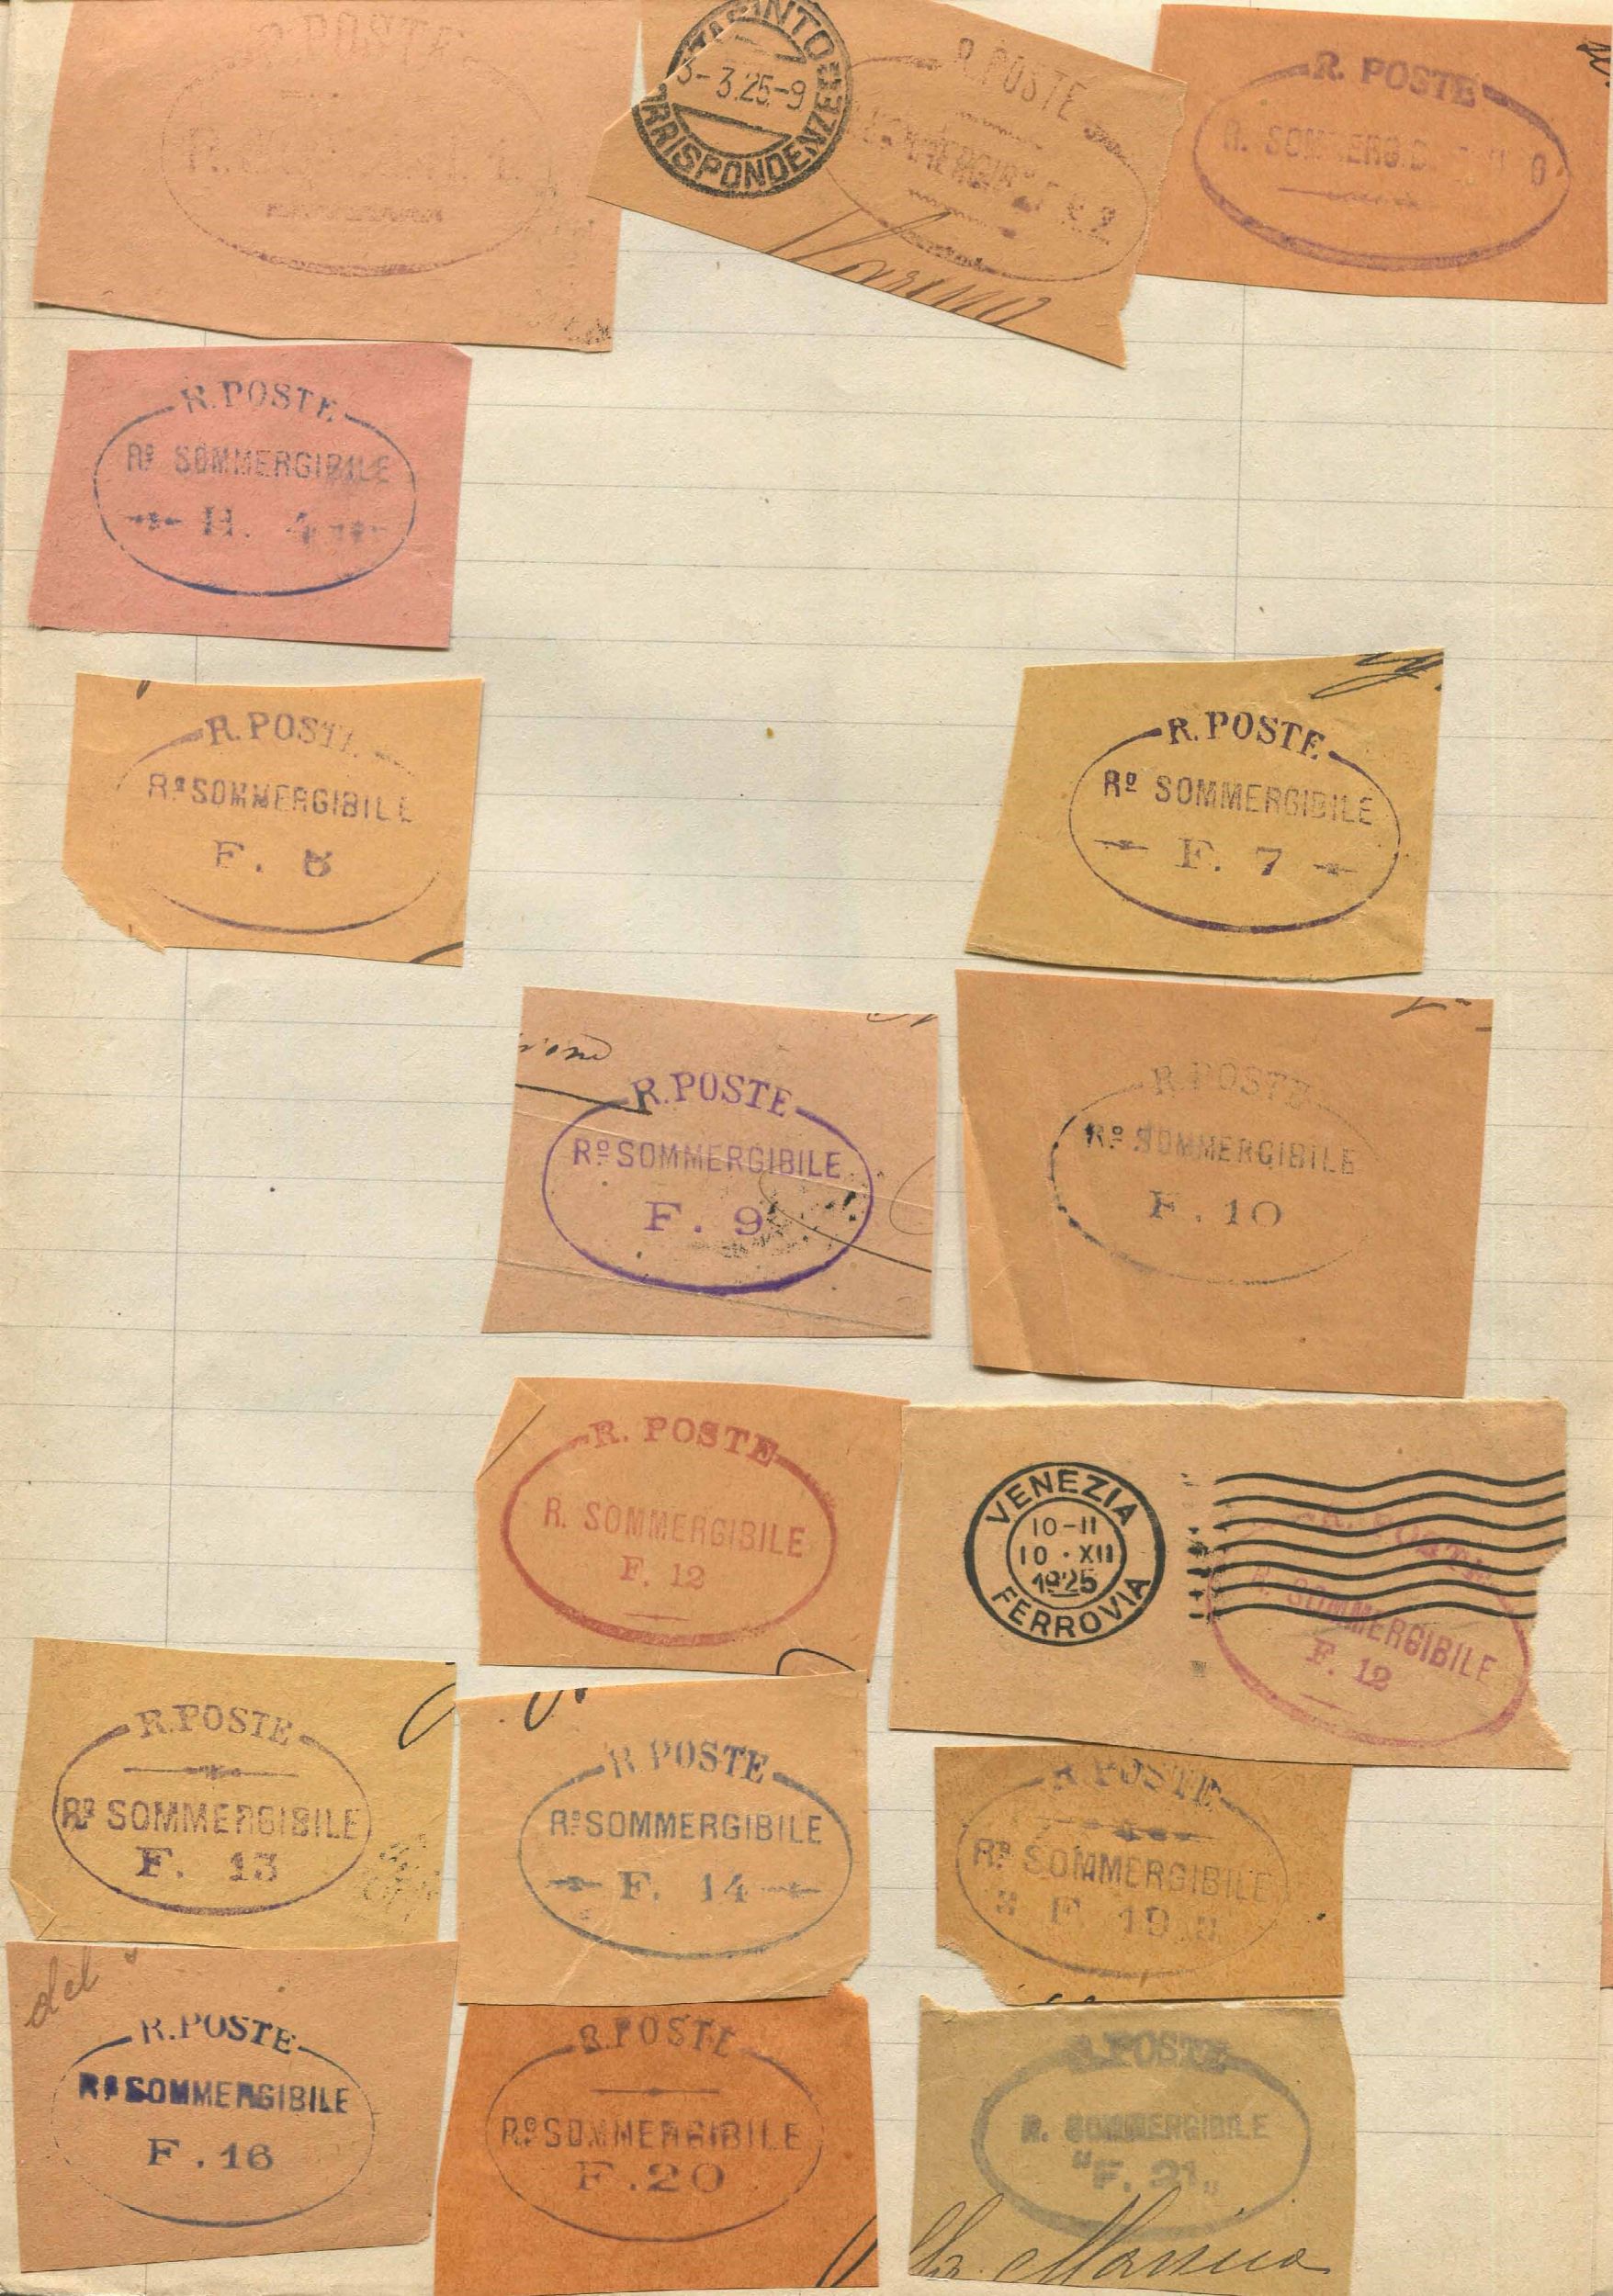 R. POSTE
TARANTO
3-3.25-9
CORRISPONDENZE
R. POSTE
R. POSTE
R. POSTE
Rº SOMMERGIBILE
H. 4
R. POSTE
Rº SOMMERGIBILE
F.
R. POSTE
Rº SOMMERGIBILE
F. 7
R. POSTE
Rº SOMMERGIBILE
F. 9
R. POSTE
Rº SOMMERGIBILE
F. 10
R. POSTE
R. SOMMERGIBILE
F. 12
VENEZIA
10-11
10·XII
1925
FERROVIA
R. POSTE
R. SOMMERGIBILE
F. 12
R. POSTE
Rº SOMMERGIBILE
F. 13
R. POSTE
Rº SOMMERGIBILE
F. 14
R. POSTE
Rº SOMMERGIBILE
F. 19
del
R. POSTE
Rº SOMMERGIBILE
F. 16
R. POSTE
Rº SOMMERGIBILE
F. 20
R. POSTE
R. SOMMERGIBILE
"F. 21"